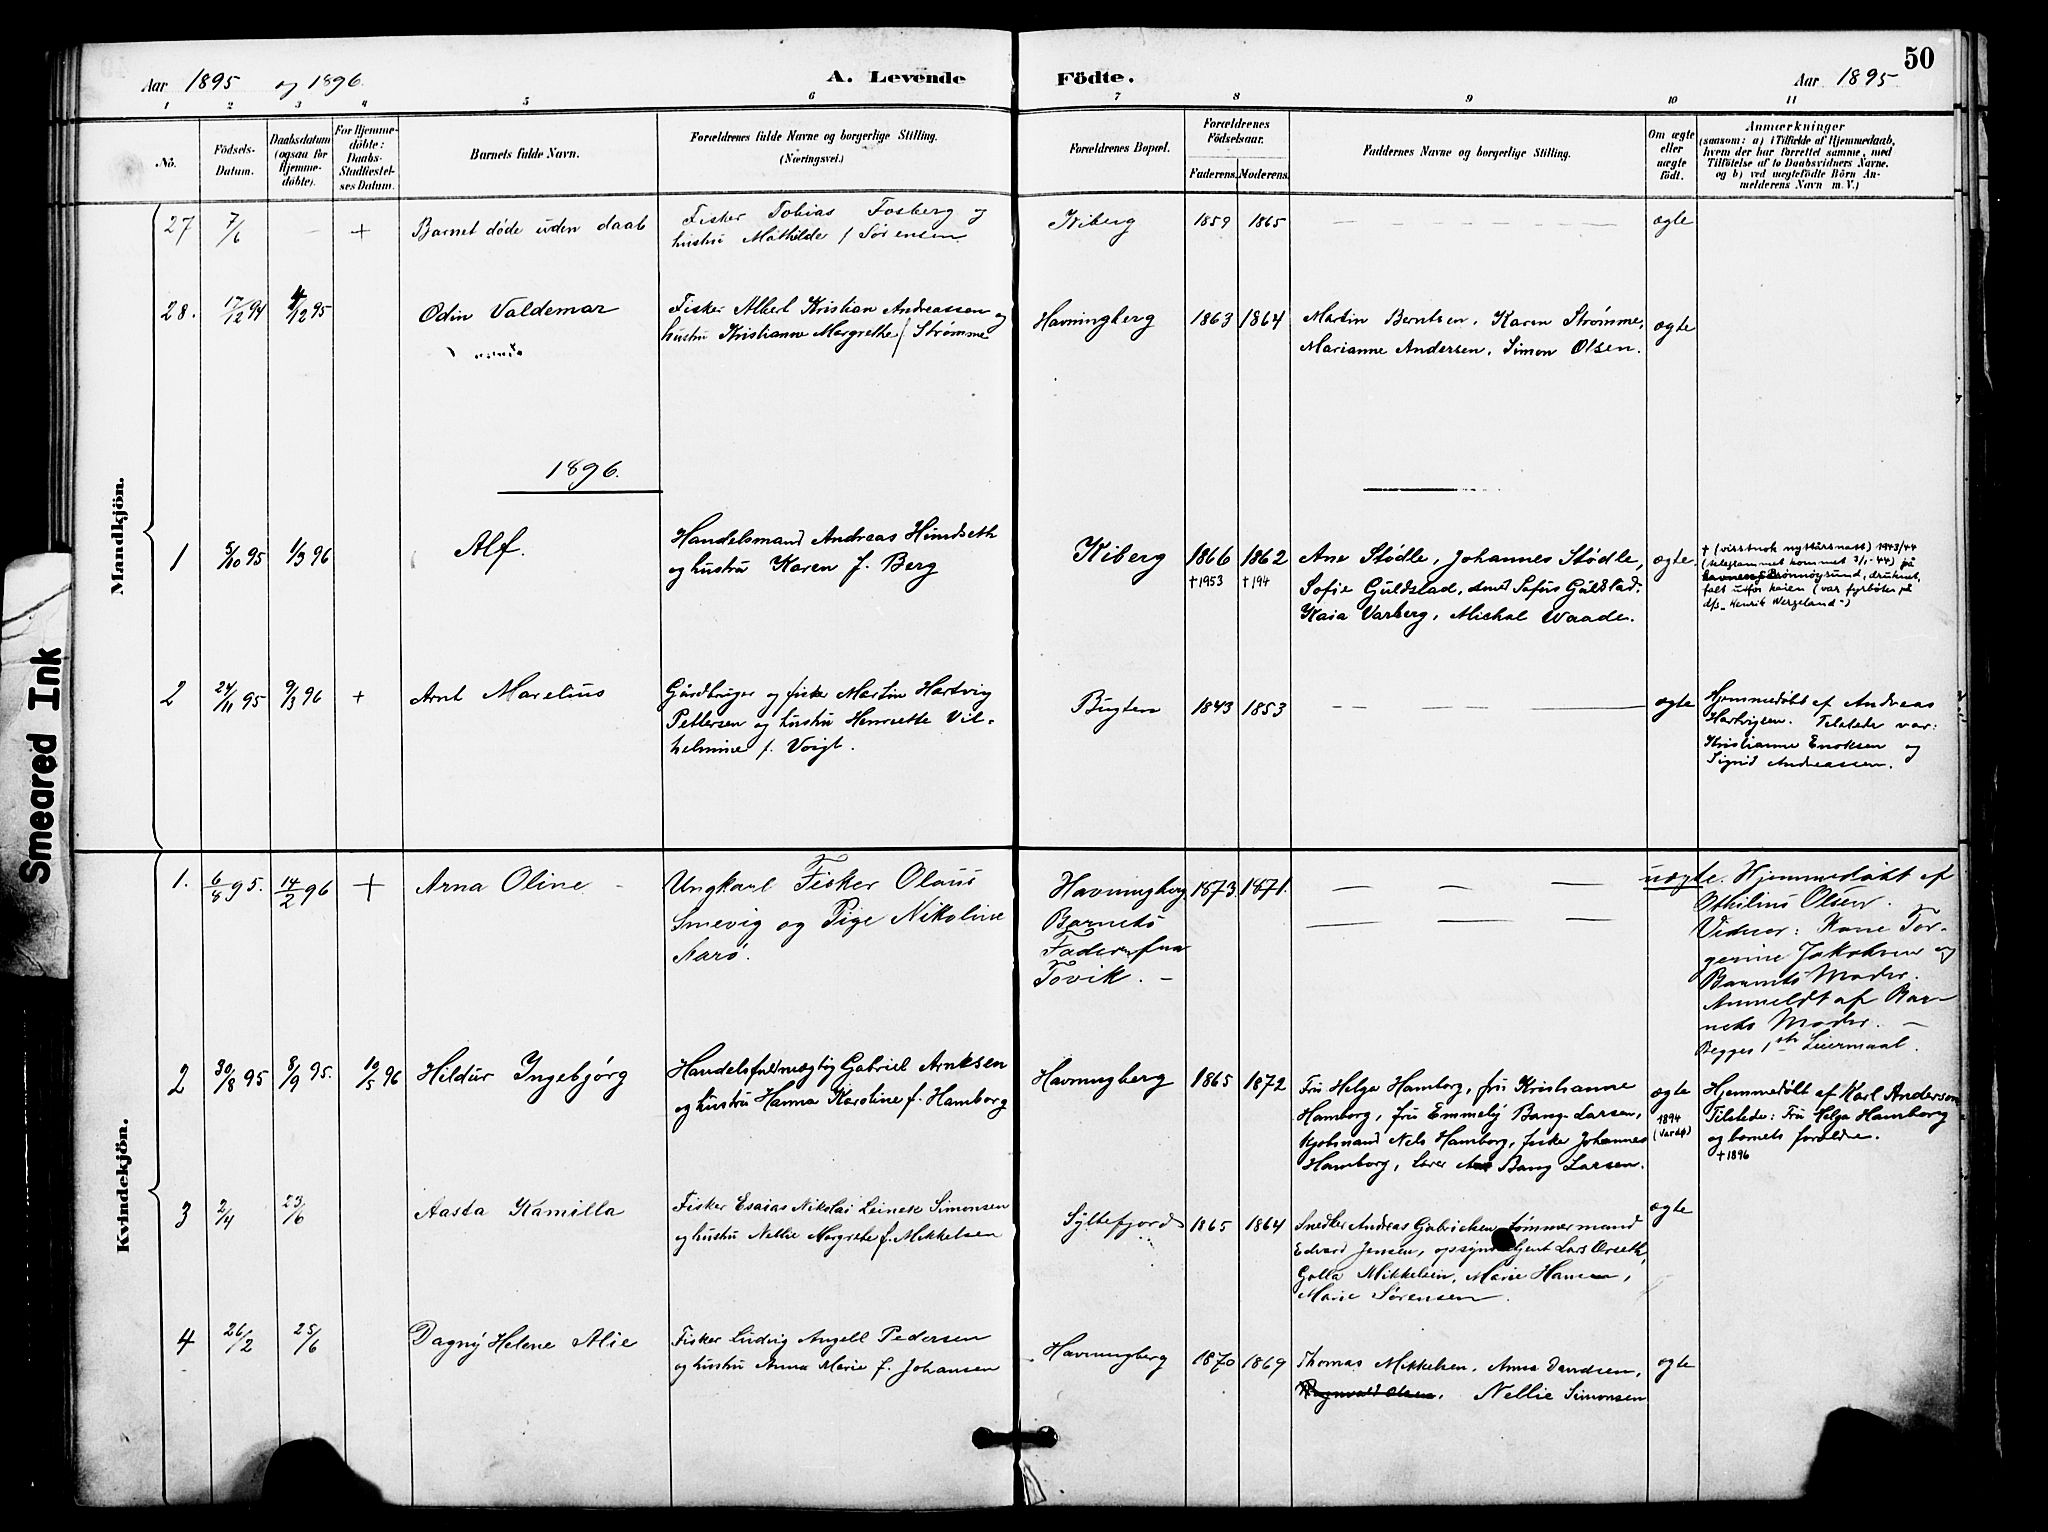 50
Aar 1895 og 1896.
A. Levende Födte.
Aar 1895
1 2 3 4 5 6 7 8 9 10 11
No.
Födsels-
Datum.
Daabsdatum
(ogsaa for
Hjemme-
döbte).
For Hjemme-
döbte:
Daabs-
Stadfæstel-
ses Datum.
Barnets fulde Navn.
Forældrenes fulde Navne og borgerlige Stilling.
(Næringsvei.)
Forældrenes Bopæl.
Forældrenes
Födselsaar.
Faderens. Moderens.
Faddernes Navne og borgerlige Stilling.
Om ægte
eller
uægte
födt.
Anmærkninger
(saasom: a) i Tilfælde af Hjemmedaab,
hvem der har forrettet samme, med
Tilföielse af to Daabsvidners Navne,
og b) ved uægtefödte Börn An-
melderens Navn m. V.)
Mandkjön.
27 7/6 — + Barnet døde uden daab
Fisker Tobias Fosberg og
hustru Mathilde f Sørensen
Kiberg 1859 1865 — — — — — — ægte
28. 17/12 94 4/12 95 Odin Valdemar
Fisker Albert Kristian Andreassen og
hustru Kristianne Margrethe f Strømme
Havningberg 1863 1864
Martin Berntsen, Karen Strømme,
Marianne Andersen, Simon Olsen.
ægte
1896.
1 5/10 95 1/3 96 Alf.
Handelsmand Andreas Himdseth
og hustru Karen f. Berg
Kiberg 1866 1862
†1953 †194
Ane Stødle, Johannes Stødle,
Sofie Guldstad, Sofus Guldstad.
Kaia Varberg, Michal Waade.
ægte.
† (visstnok nyttårsnatt) 1943/44
(telegrammet kommet 3/1-44) på
Brønnøysund, druknet,
falt utfor kaien (var fyrbøter på
d/s „Henrik Wergeland")
2 24/11 95 9/3 96 + Arnt Marelius
Gårdbruger og fisker Martin Hartvig
Pettersen og hustru Henriette Vil-
helmine f. Voigt.
Bugten 1843 1853 — — — ægte
Hjemmedøbt af Andreas
Hartvigsen. Tilstede var:
Kristianne Enoksen og
Sigrid Andreassen.
Kvindekjön.
1. 6/8 95. 14/2 96 + Arna Oline
Ungkarl Fisker Olaus
Smevig og Pige Nikoline
Aarø.
Havningberg
Barnets
Fader fra
Tovik. —
1873. 1871. — — —
uægte.
Hjemmedøbt af
Othilius Olsen.
Vidner: Kone Tor-
gerine Jakobsen og
Barnets Moder.
Anmeldt af Bar-
nets Moder. —
Begges 1ste Leiermaal.
2 30/8 95 8/9 95. 10/5 96 Hildur Ingebjørg
Handelsfuldmægtig Gabriel Arntsen
og hustru Hanna Karoline f. Hamborg
Havningberg 1865 1872
Fru Helga Hamborg, fru Kristianne
Hamborg, fru Emmely Bang-Larsen,
Kjøbmand Nels Hamborg, fisker Johannes
Hamborg, Lærer Bang Larsen.
ægte
1894
(Vardø)
Hjemmedøbt af Karl Anderson
Tilstede: Fru Helga Hamborg
og barnets forældre.
†1896
3 2/4 23/6 Aasta Kamilla
Fisker Esaias Nikolai Leines Simonsen
og hustru Nellie Margrete f. Mikkelsen
Syltefjord 1865 1864
Snedker Andreas Gabrielsen, tømmermand
Edvard Jensen, opsynsbetjent Lars Orseth,
Golla Mikkelsen, Marie Hansen,
Marie Sørensen.
ægte
4 26/2 25/6 Dagny Helene Alie
Fisker Ludvig Angell Pedersen
og hustru Anna Marie f. Johansen
Havningberg 1870 1869
Thomas Mikkelsen, Anna Davidsen,
Ragnvald Olsen. Nellie Simonsen
ægte
Smeared Ink